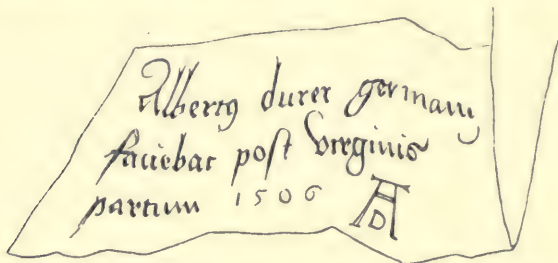 Albertꝰ durer germanꝰ
faciebat poſt Virginis
partum 1506 AD